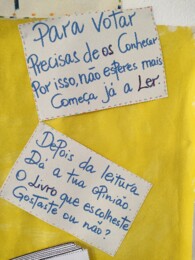 Para Votar
Precisas de os Conhecer
Por isso, não esperes mais
Começa já a Ler.
Depois da leitura
Dá a tua opinião.
O Livro que escolheste
Gostaste ou não?